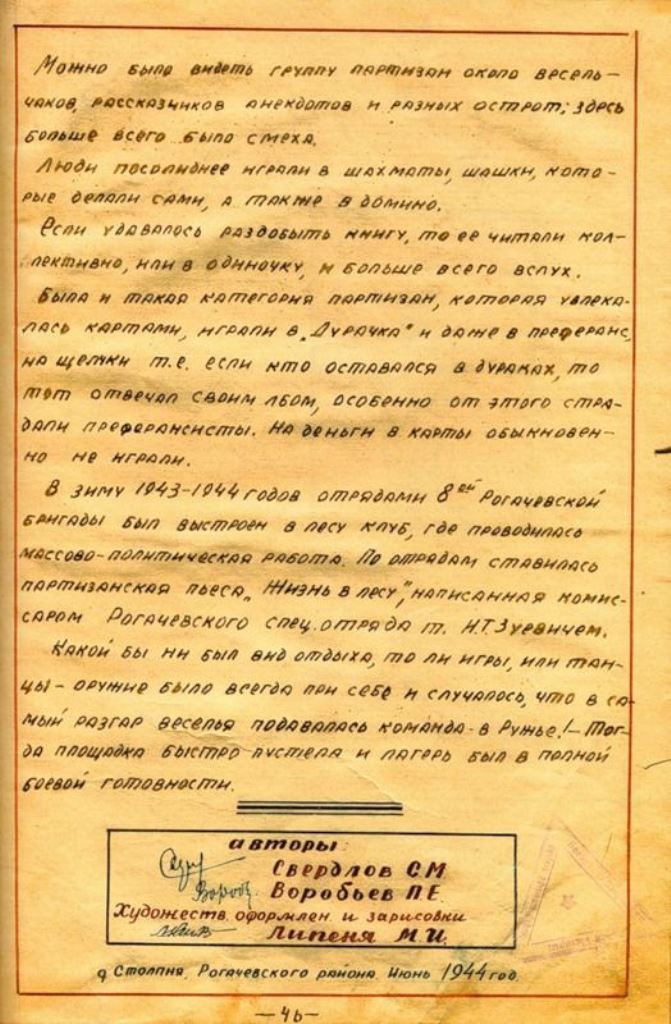 Можно было видеть группу партизан около весель-
чаков, рассказчиков анекдотов и разных острот; здесь
больше всего было смеха.
Люди посолиднее играли в шахматы, шашки, кото-
рые делали сами, а также в домино.
Если удавалось раздобыть книгу, то ее читали кол-
лективно, или в одиночку, и больше всего вслух.
Была и такая категория партизан, которая увлека-
лась картами, играли в „Дурачка" и даже в преферанс,
на щелчки т.е. если кто оставался в дураках, то
тот отвечал своим лбом, особенно от этого стра-
дали преферансисты. На деньги в карты обыкновен-
но не играли.
В зиму 1943-1944 годов отрядами 8ой Рогачевской
бригады был выстроен в лесу клуб, где проводилась
массово-политическая работа. По отрядам ставилась
партизанская пьеса „Жизнь в лесу", написанная комис-
саром Рогачевского спец.отряда т. И.Т.Зуевичем.
Какой бы ни был вид отдыха, то ли игры, или тан-
цы - оружие было всегда при себе и случалось, что в са-
мый разгар веселья подавалась команда - в Ружье! - Тог-
да площадка быстро пустела и лагерь был в полной
боевой готовности.
авторы:
Свердлов С.М
Воробьев П.Е.
Художеств. оформлен. и зарисовки
Липеня М.И.
д Столпня, Рогачевского района. Июнь 1944 год.
-46-